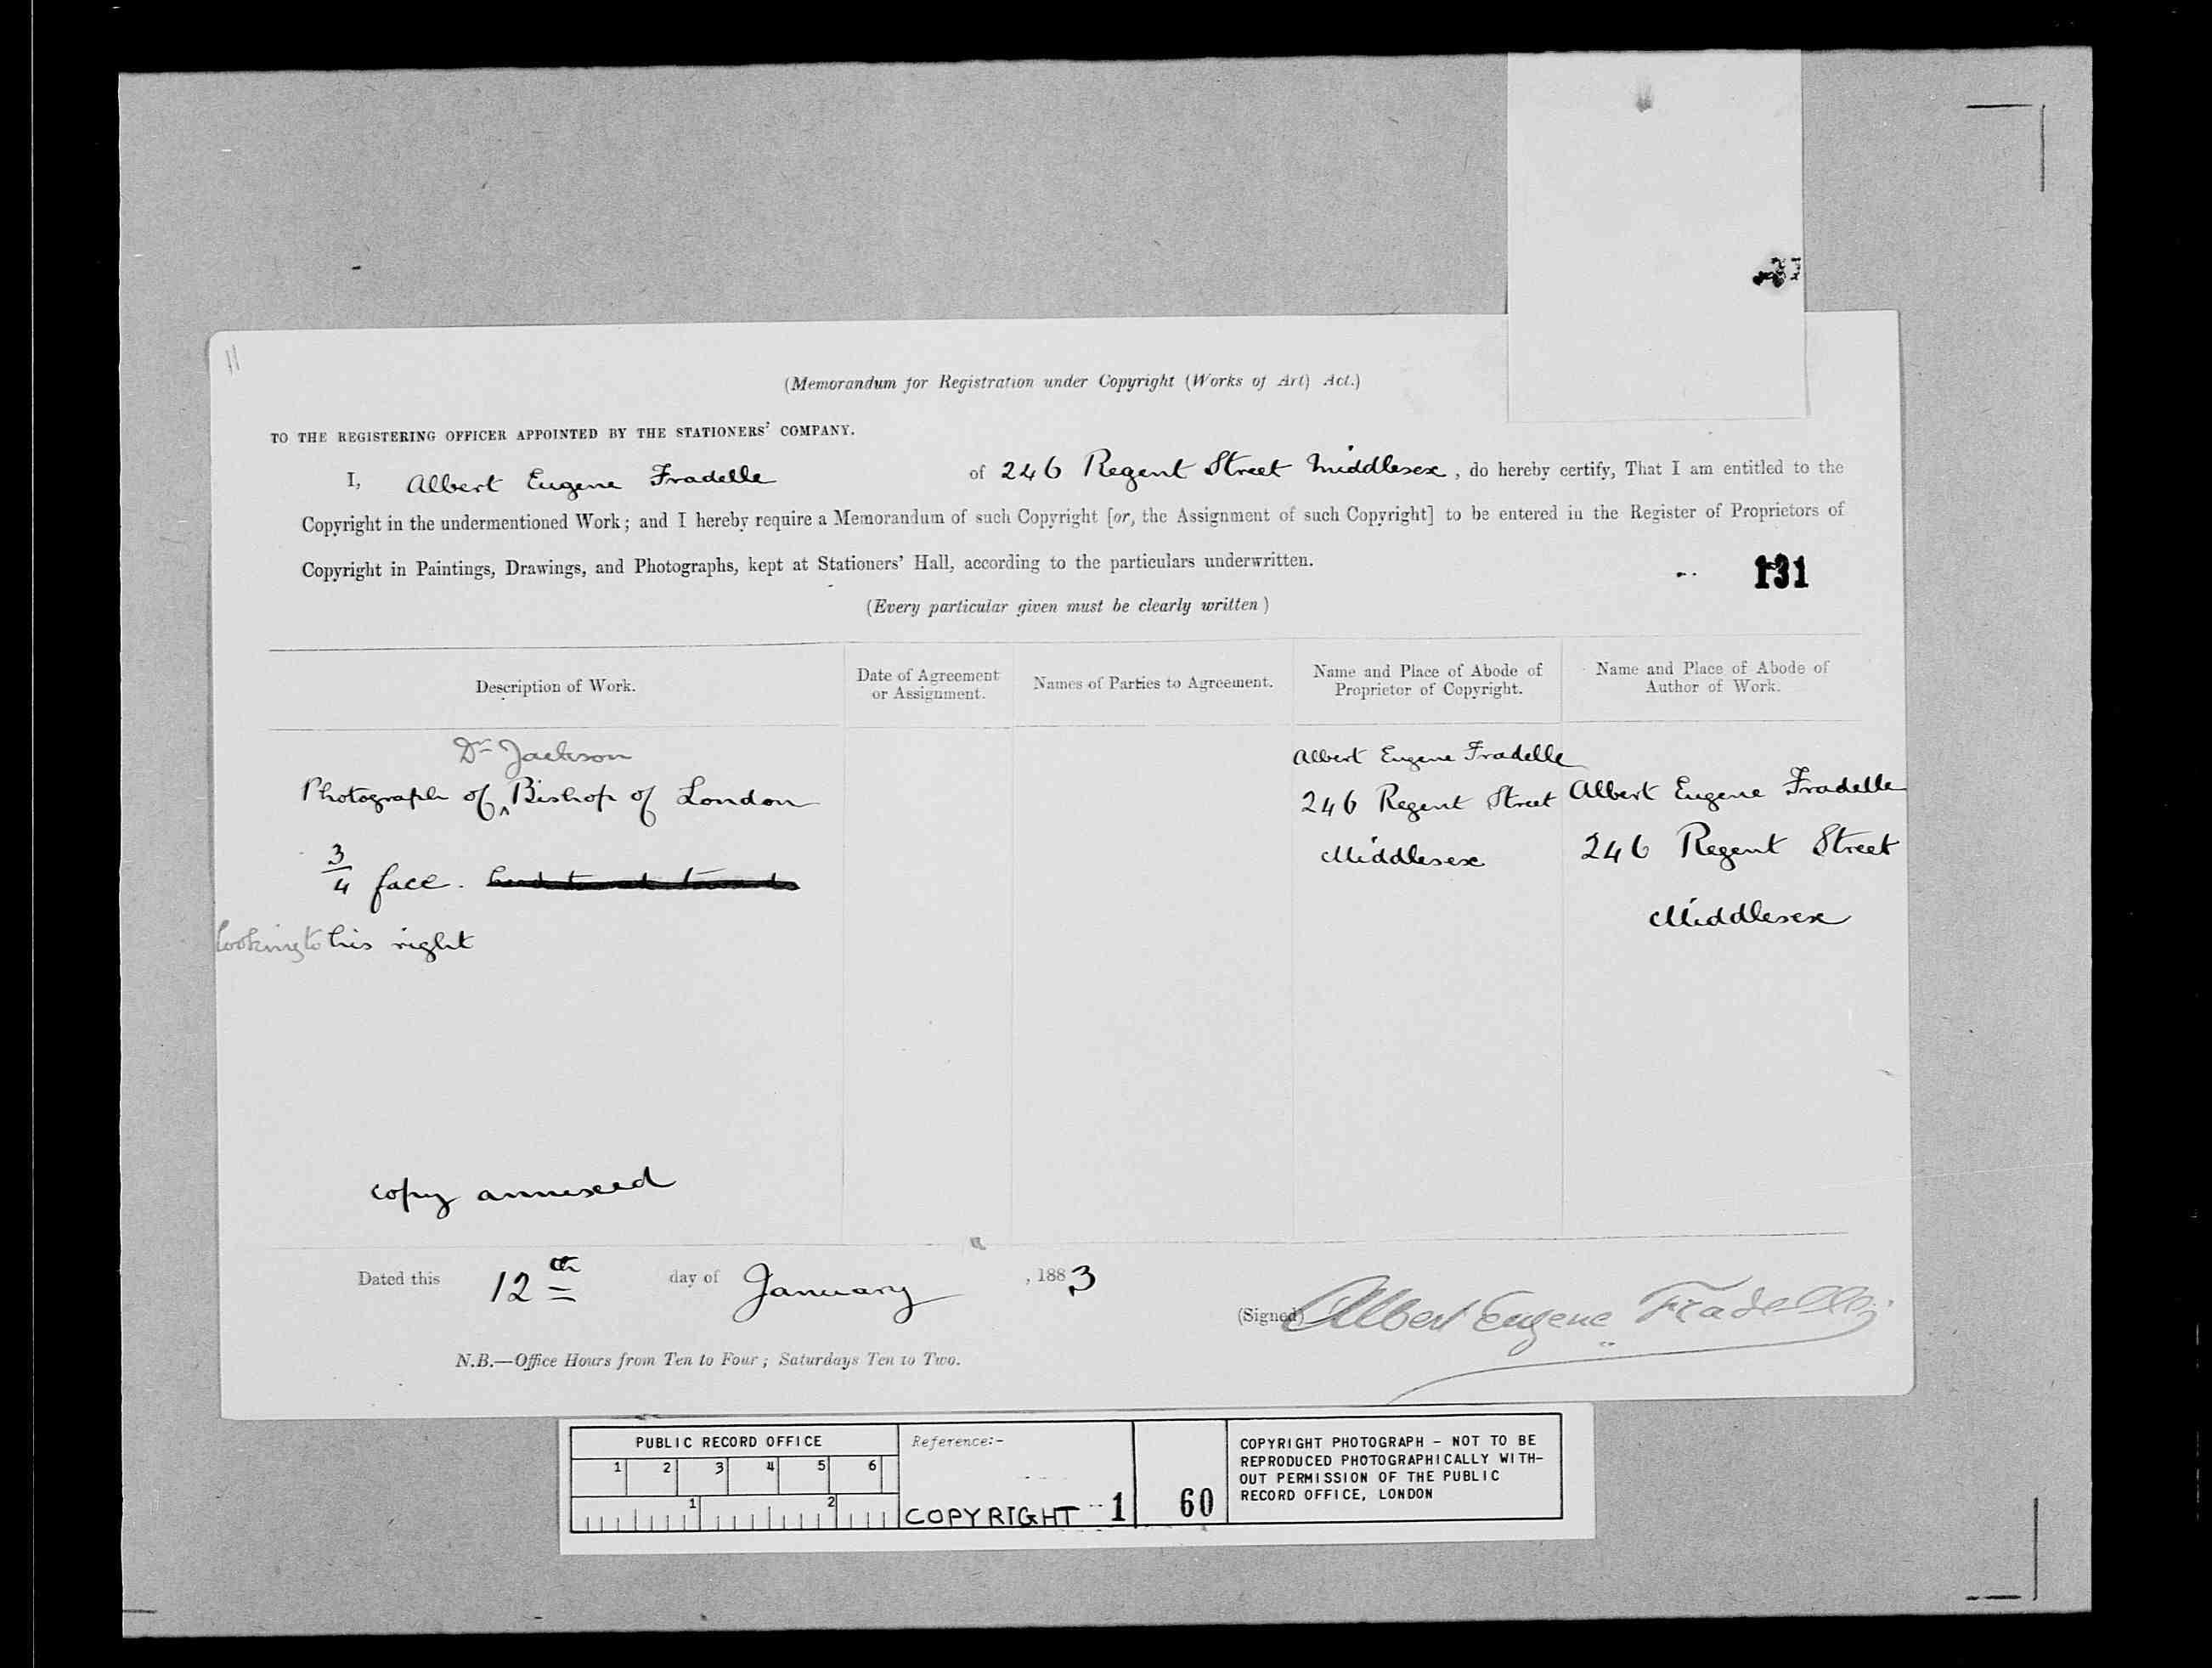 11
(Memorandum for Registration under Copyright (Works of Art) Act.)
TO THE REGISTERING OFFICER APPOINTED BY THE STATIONERS' COMPANY.
I, Albert Eugene Fradelle of 246 Regent Street Middlesex, do hereby certify, That I am entitled to the
Copyright in the undermentioned Work; and I hereby require a Memorandum of such Copyright [or, the Assignment of such Copyright] to be entered in the Register of Proprietors of
Copyright in Paintings, Drawings, and Photographs, kept at Stationers' Hall, according to the particulars underwritten.
131
(Every particular given must be clearly written)
Description of Work.
Date of Agreement
or Assignment.
Names of Parties to Agreement.
Name and Place of Abode of
Proprietor of Copyright.
Name and Place of Abode of
Author of Work.
Dr Jackson
Photograph of ^ Bishop of London
3/4 face.
looking to his right
copy annexed
Albert Eugene Fradelle
246 Regent Street
Middlesex
Albert Eugene Fradelle
246 Regent Street
Middlesex
Dated this 12th day of January, 1883
(Signed) Albert Eugene Fradelle
N.B.—Office Hours from Ten to Four; Saturdays Ten to Two.
PUBLIC RECORD OFFICE
1 2 3 4 5 6
1 2
Reference:-
COPYRIGHT 1 60
COPYRIGHT PHOTOGRAPH - NOT TO BE
REPRODUCED PHOTOGRAPHICALLY WITH-
OUT PERMISSION OF THE PUBLIC
RECORD OFFICE, LONDON